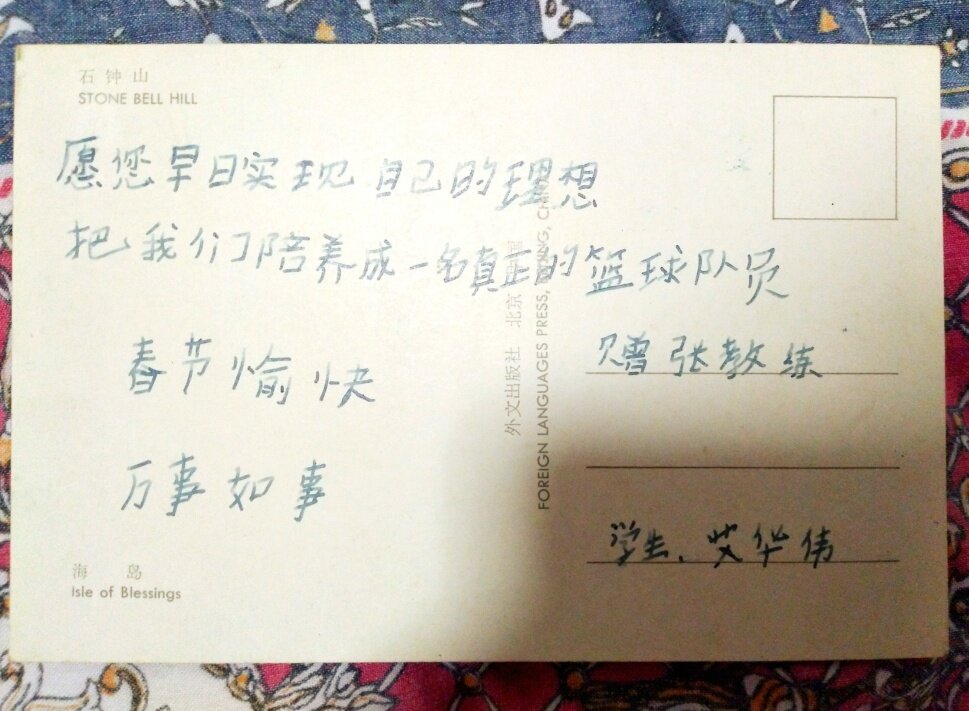 石钟山
STONE BELL HILL
愿您早日实现自己的理想
把我们陪养成一名真正的篮球队员
春节愉快
万事如事
海岛
Isle of Blessings
外文出版社 北京
FOREIGN LANGUAGES PRESS,
赠张教练
学生、艾华伟